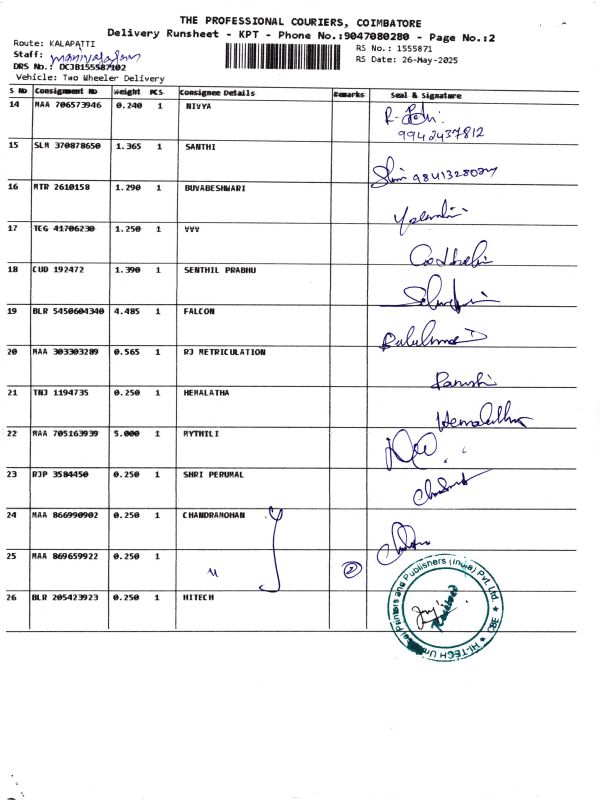 THE PROFESSIONAL COURIERS, COIMBATORE
Delivery Runsheet - KPT - Phone No.:9047080280 - Page No.:2
Route: KALAPATTI
RS No.: 1555871
Staff:
RS Date: 26-May-2025
DRS No.: DCJB155587102
Vehicle: Two Wheeler Delivery
S No Consignment No Weight PCS Consignee Details Remarks Seal & Signature
14 MAA 706573946 0.240 1 NIVYA
9942437812
15 SLM 370878650 1.365 1 SANTHI
16 MTR 2610158 1.290 1 BUVABESHWARI
17 TCG 41706230 1.250 1 VVV
18 CUD 192472 1.390 1 SENTHIL PRABHU
19 BLR 5450604340 4.485 1 FALCON
20 MAA 303303289 0.565 1 RJ METRICULATION
21 TNJ 1194735 0.250 1 HEMALATHA
Hemalatha
22 MAA 705163939 5.000 1 MYTHILI
23 RJP 3584450 0.250 1 SHRI PERUMAL
24 MAA 866990902 0.250 1 CHANDRAMOHAN
25 MAA 869659922 0.250 1 " 2
26 BLR 205423923 0.250 1 HITECH
HI-TECH Universal Printers and Publishers (India) Pvt. Ltd. CBE
Received